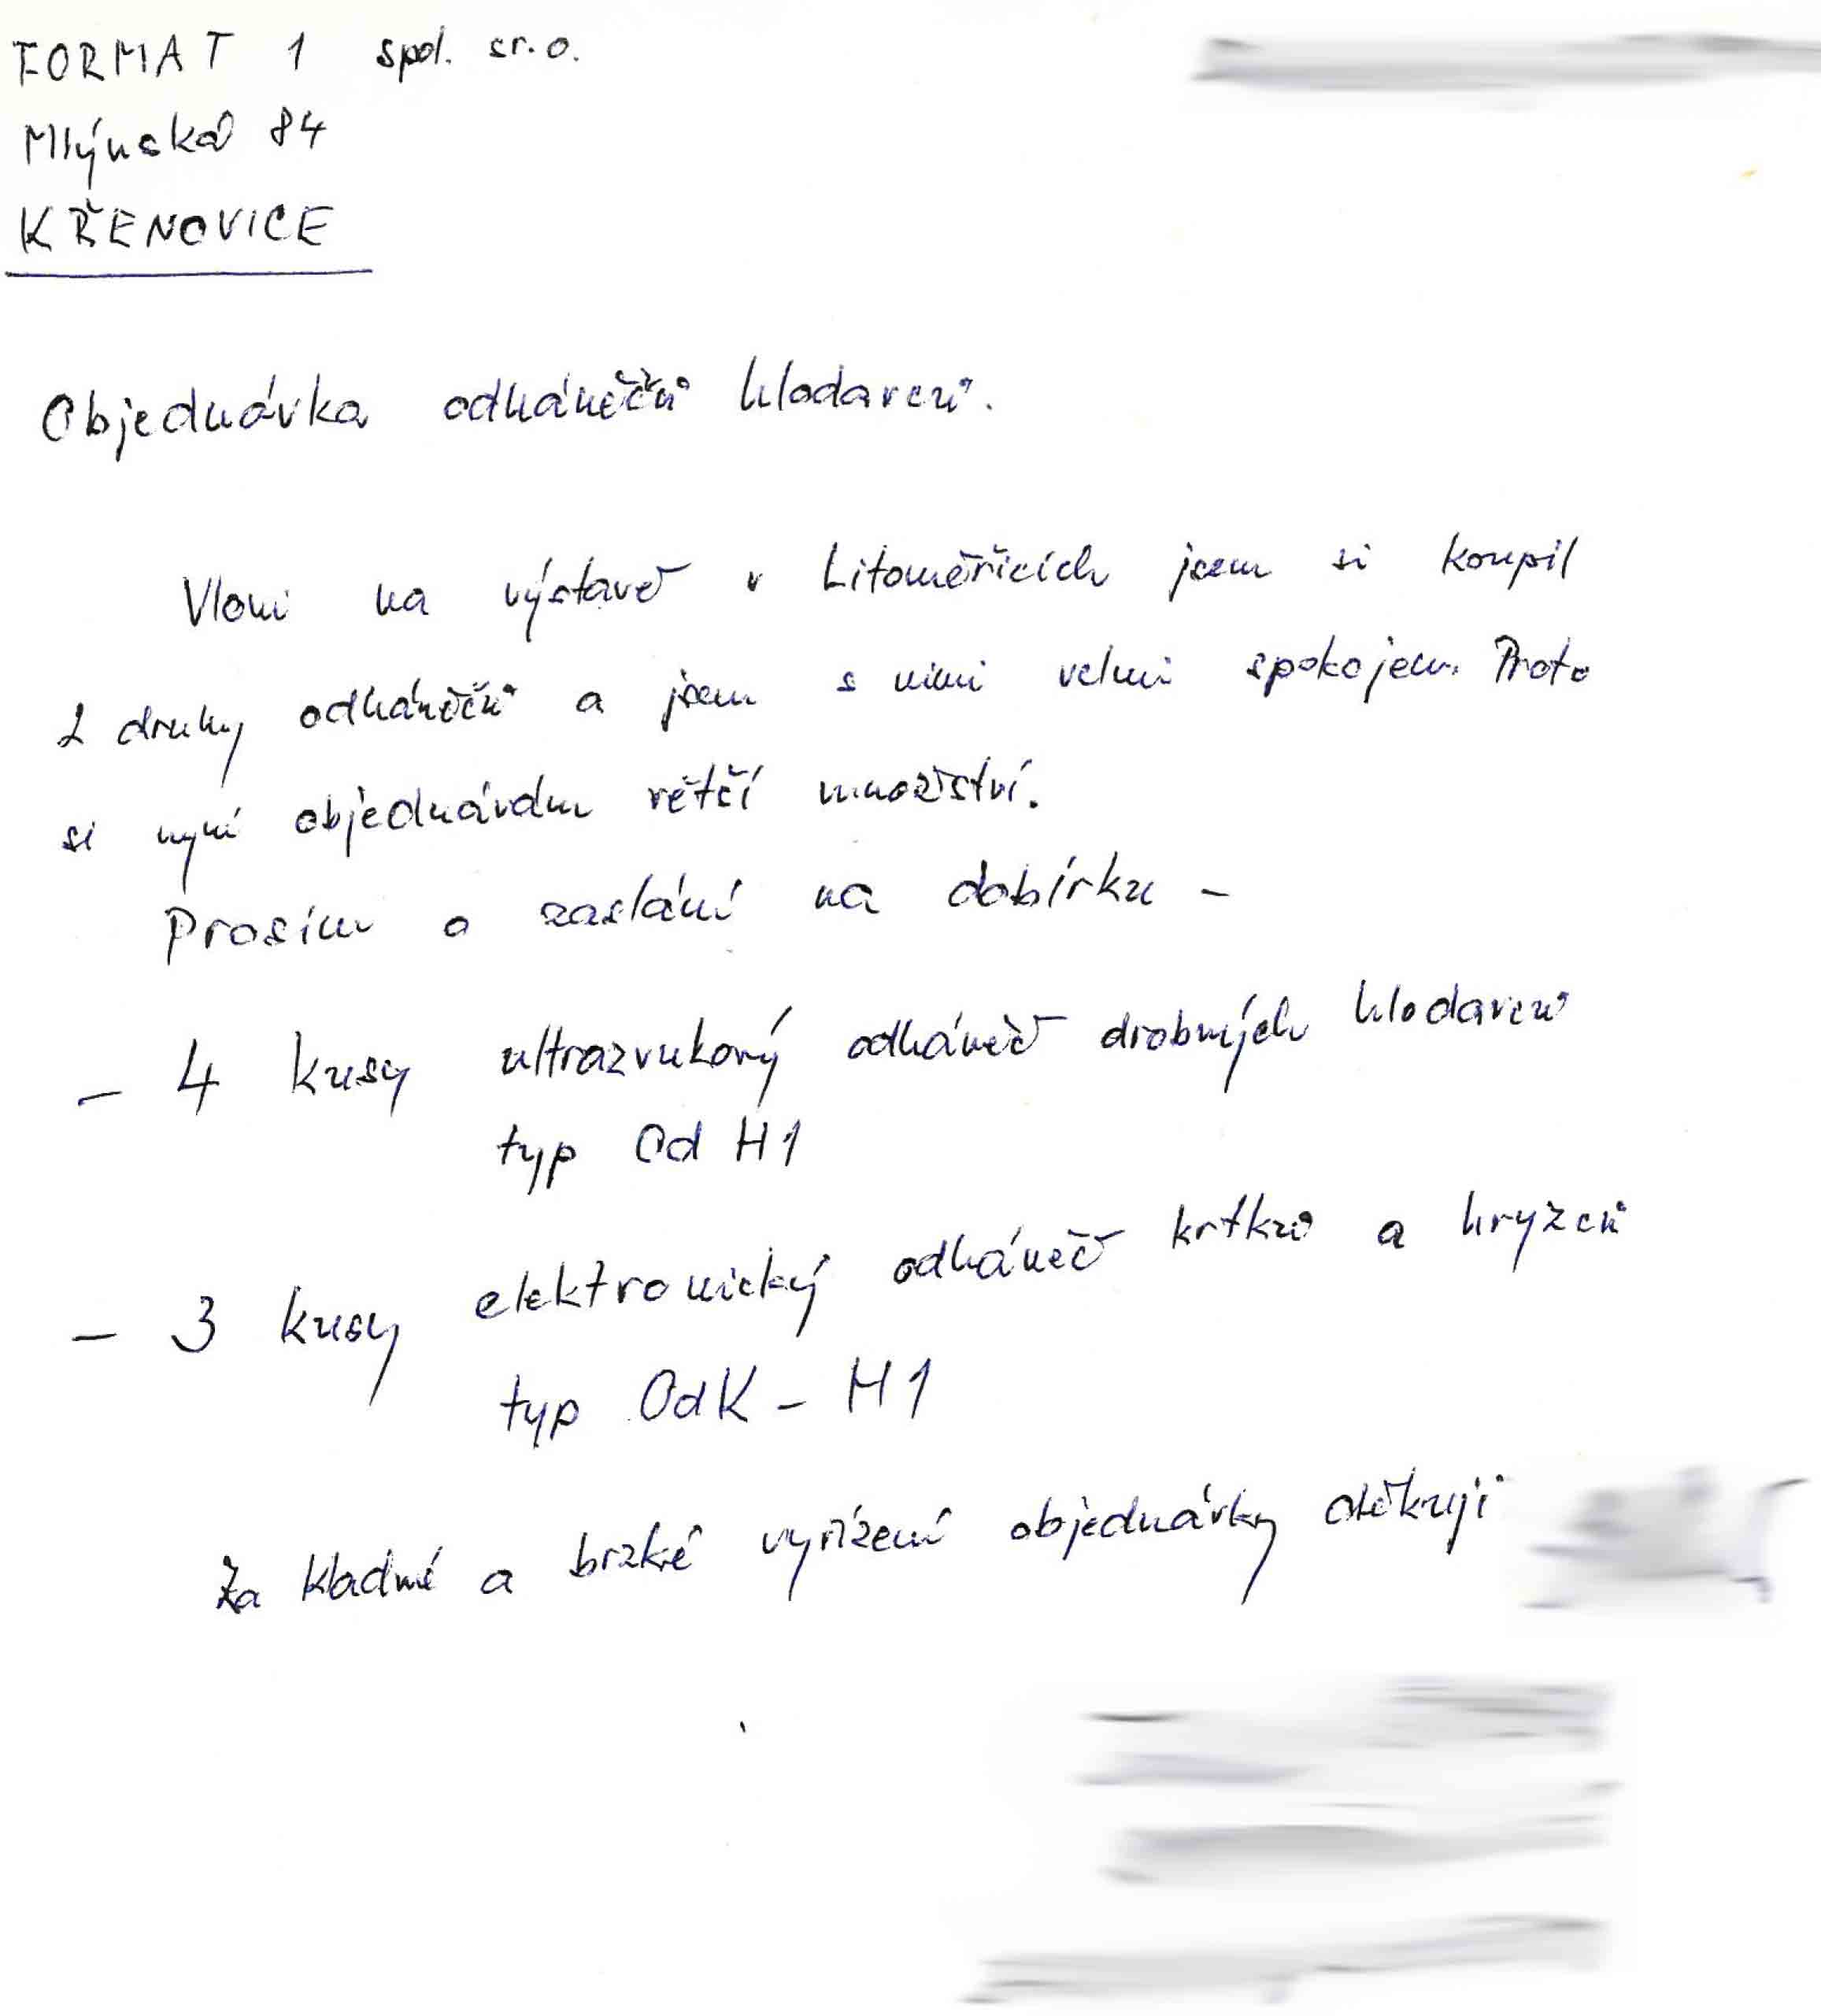 FORMAT 1 spol. s r.o.
Mlýnská 84
KŘENOVICE
Objednávka odháněčů hlodavců.
Vloni na výstavě v Litoměřicích jsem si koupil
2 druhy odháněčů a jsem s nimi velmi spokojen. Proto
si nyní objednávám větší množství.
Prosím o zaslání na dobírku -
- 4 kusy ultrazvukový odháněč drobných hlodavců
typ Od H1
- 3 kusy elektronický odháněč krtků a hryzců
typ OdK - H1
Za kladné a brzké vyřízení objednávky děkuji